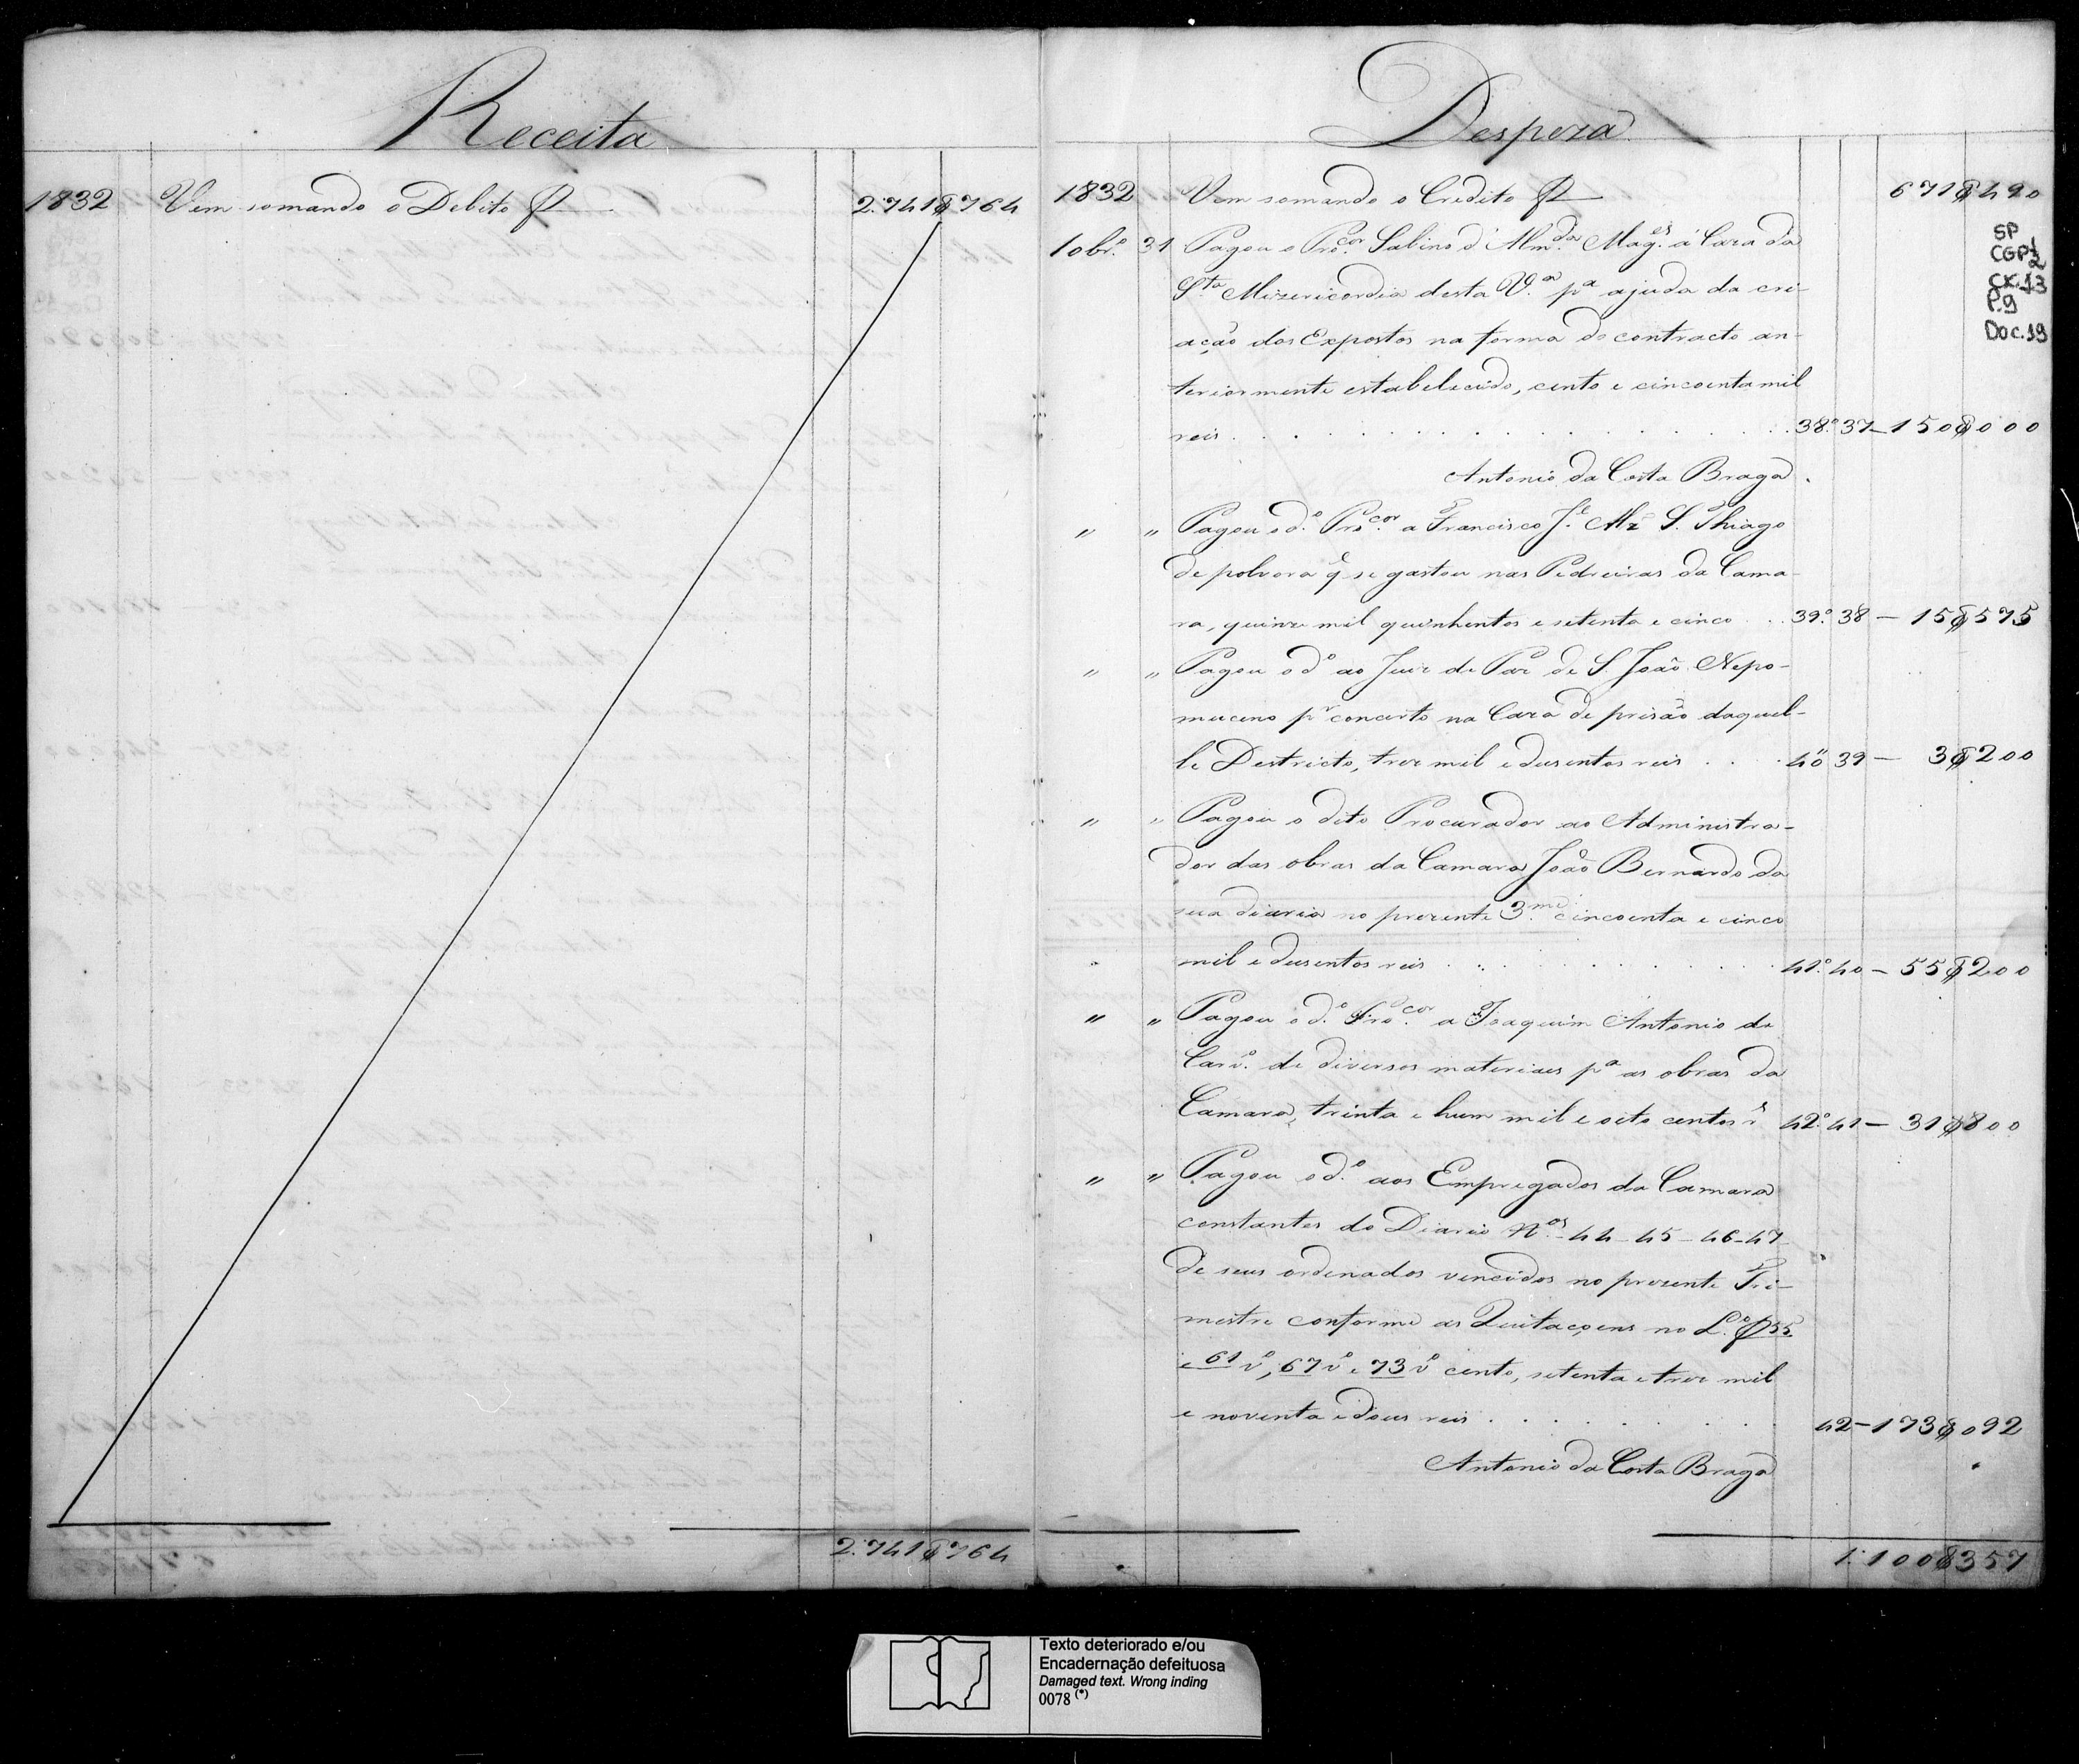 Receita
1832 Vem somando o Debito 2:741$764
2:741$764
Despeza
1832 Vem somando o Credito 671$490
SP
CGP1/2
CX.13
P.9
Doc.19
10br.º 31 Pagou o Pro.cor Sabino d'Alm.da Mag.es á Caza da
S.ta Mizericordia desta V.ª p.ª ajuda da cri-
ação dos Expostos na forma do contracto an-
teriormente estabelecido, cento e cincoenta mil
reis . . . 38.º 37 — 150$000
Antonio da Costa Braga
" " Pagou o d.º Pro.cor a Francisco J.e Mz S. Thiago
de polvora q̃ se gastou nas Pedreiras da Cama-
ra, quinze mil quinhentos e setenta e cinco . . 39.º 38 — 15$575
" " Pagou o d.º ao Juiz de Paz de S. João Nepo-
muceno p.r concerto na Caza de prizão daquel-
le Destricto, trez mil e duzentos reis . . . 40 39 — 3$200
" " Pagou o dito Procurador ao Administra-
dor das obras da Camara João Bernardo da
sua diaria no prezente 3.me cincoenta e cinco
mil e duzentos reis . . . 41.º 40 — 55$200
" " Pagou o d.º Pro.cor a Joaquim Antonio de
Carv.º de diversos materiaes p.ª as obras da
Camara, trinta e hum mil e oito centos r.s 42.º 41 — 31$800
" " Pagou o d.º aos Empregados da Camara
constantes do Diario N.os 44 - 45 - 46 - 47
de seus ordenados vencidos no prezente Tri-
mestre conforme as Quitaçoens no L.º f 55
e 61 v.º, 67 v.º e 73 v.º cento, setenta e trez mil
e noventa e dous reis . . . 42 — 173$092
Antonio da Costa Braga
1:100$357
Texto deteriorado e/ou
Encadernação defeituosa
Damaged text. Wrong inding
0078 (*)